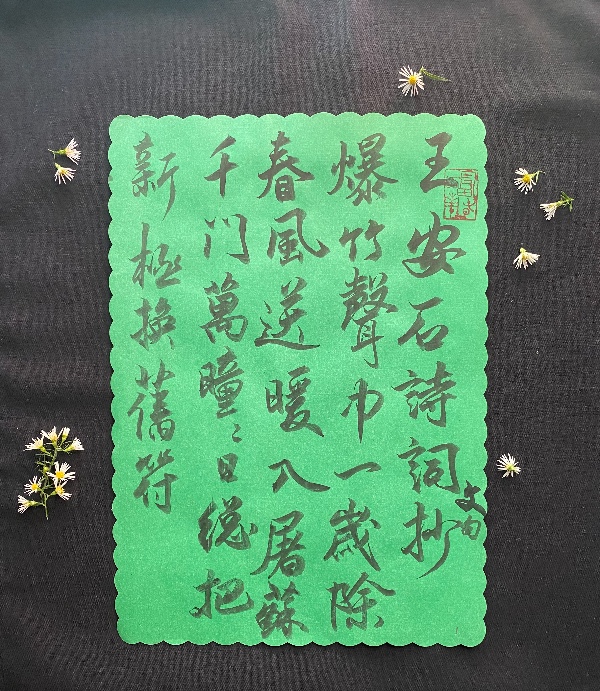 王安石詩詞抄
爆竹聲中一歲除
春風送暖入屠蘇
千門萬瞳々日總把
新桃換舊符